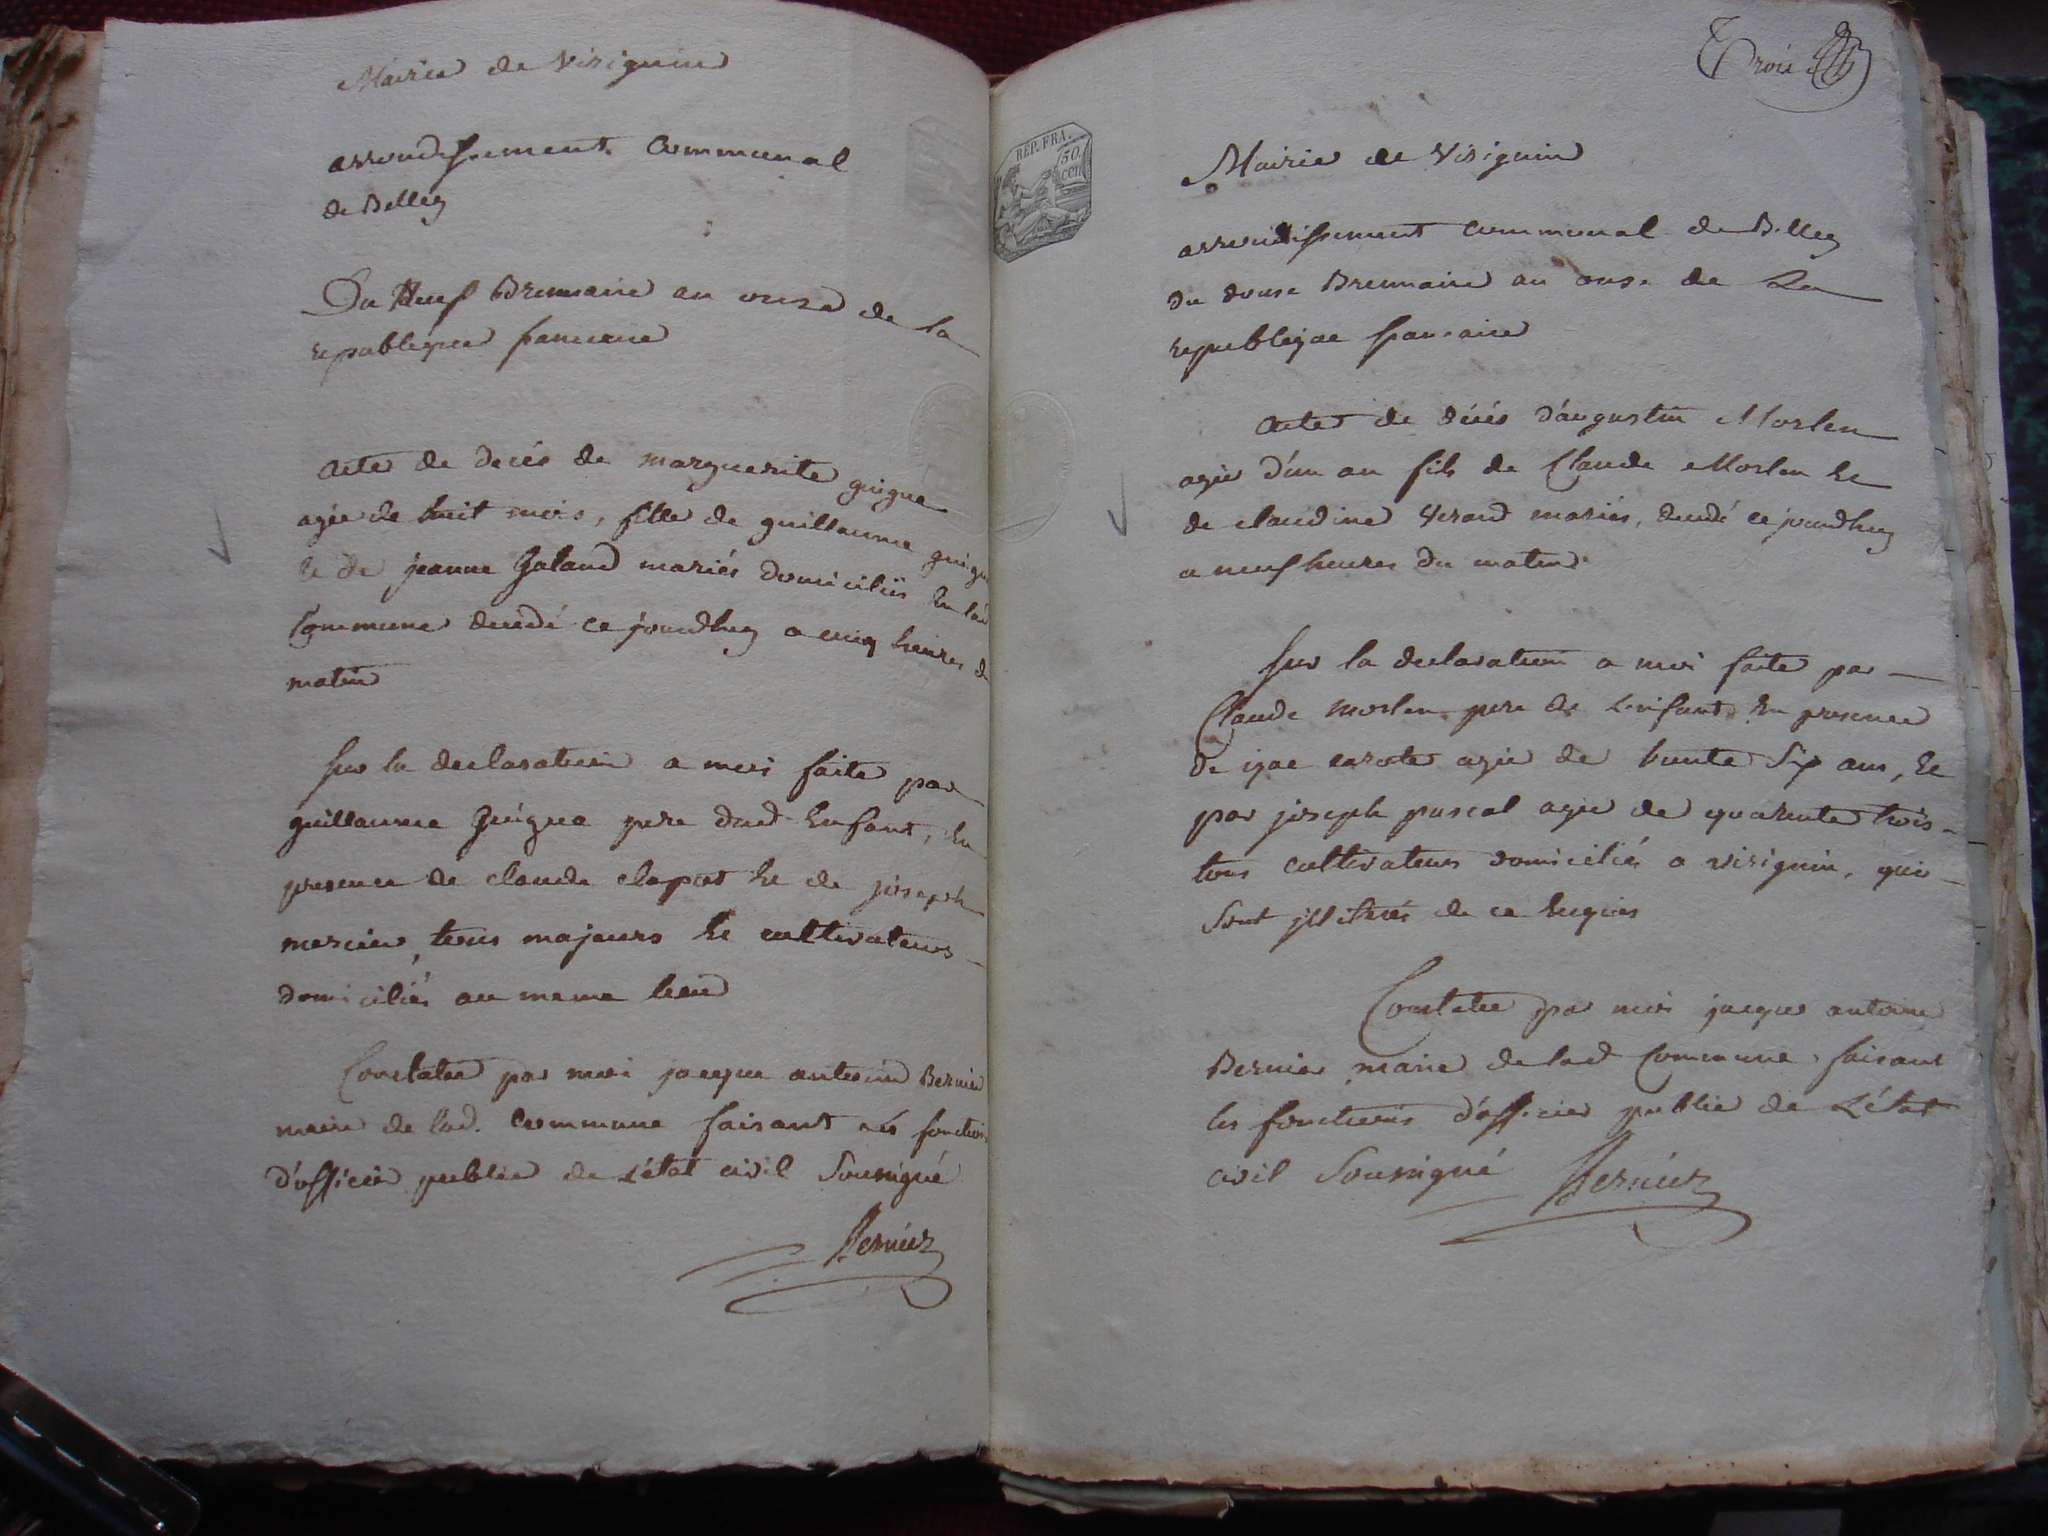 Mairie de Virignin
arrondissement communal
de Belley
Du Neuf Brumaire an onze de la
republique francaise
acte de decés de marguerite guigue
agée de huit mois, fille de guillaume guigue
et de jeanne Galand mariés domiciliés en lad
Commune decedé ce jourdhuy a cinq heures du
matin
sur la declaration a moi faite par
guillaume Guigue pere dud. enfant, en
presence de claude clapot et de joseph
mercier, tous majeurs et cultivateurs
domiciliés au meme lieu
Constatée par moi jacque antoine Bernier
maire de lad. commune faisant les fonctions
d'officier public de l'état civil Soussigné
Bernier
Trois
REP. FRA.
50.
cen
Mairie de Virignin
arrondissement communal de Belley
du douse Brumaire an onse de La
republique francaise
acte de décés d'augustin Morlen
agée d'un an fils de Claude Morlen et
de claudine Verand mariés, decedé ce jourdhuy
a neuf heures du matin
sur la declaration a moi faite par
Claude Morlen pere de L'enfant en presence
de agée de trente Six ans, et
par joseph pascal agée de quarente trois
tous cultivateurs domiciliés a virignin, qui
Sont illiterés de ce enquis
Constatée par moi jacque antoine
Bernier maire de lad Commune faisant
les fonctions d'officier public de L'état
civil Soussigné Bernier